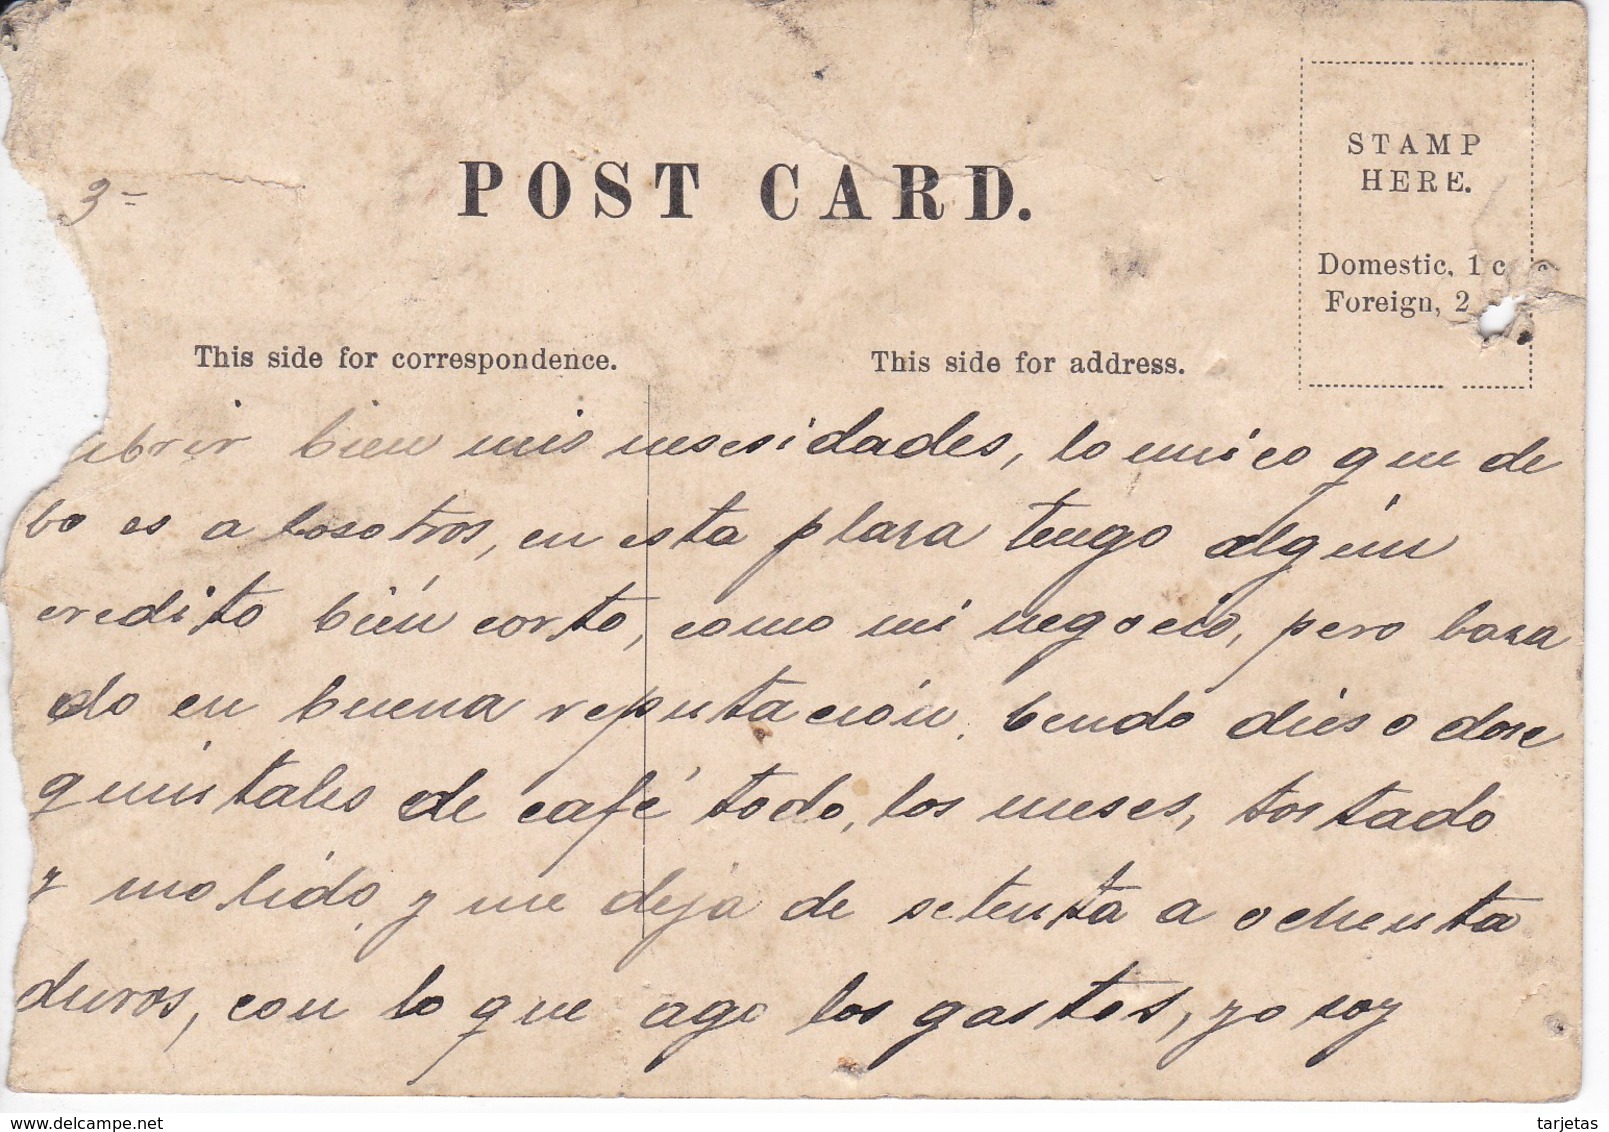 POST CARD.
STAMP
HERE.
Domestic, 1 c
Foreign, 2
3=
This side for correspondence.
This side for address.
ubrir bien mis nesesidades, lo unico que de
bo es a bosotros, en esta plaza tengo algún
credito bién corto, como mi negocio, pero baza
do en buena reputación. bendo dies o dose
quintales de café todo, los meses, tostado
y molido, y me deja de setenta a ochenta
duros, con lo que ago los gastos, yo soy
delcampe.net
tarjetas